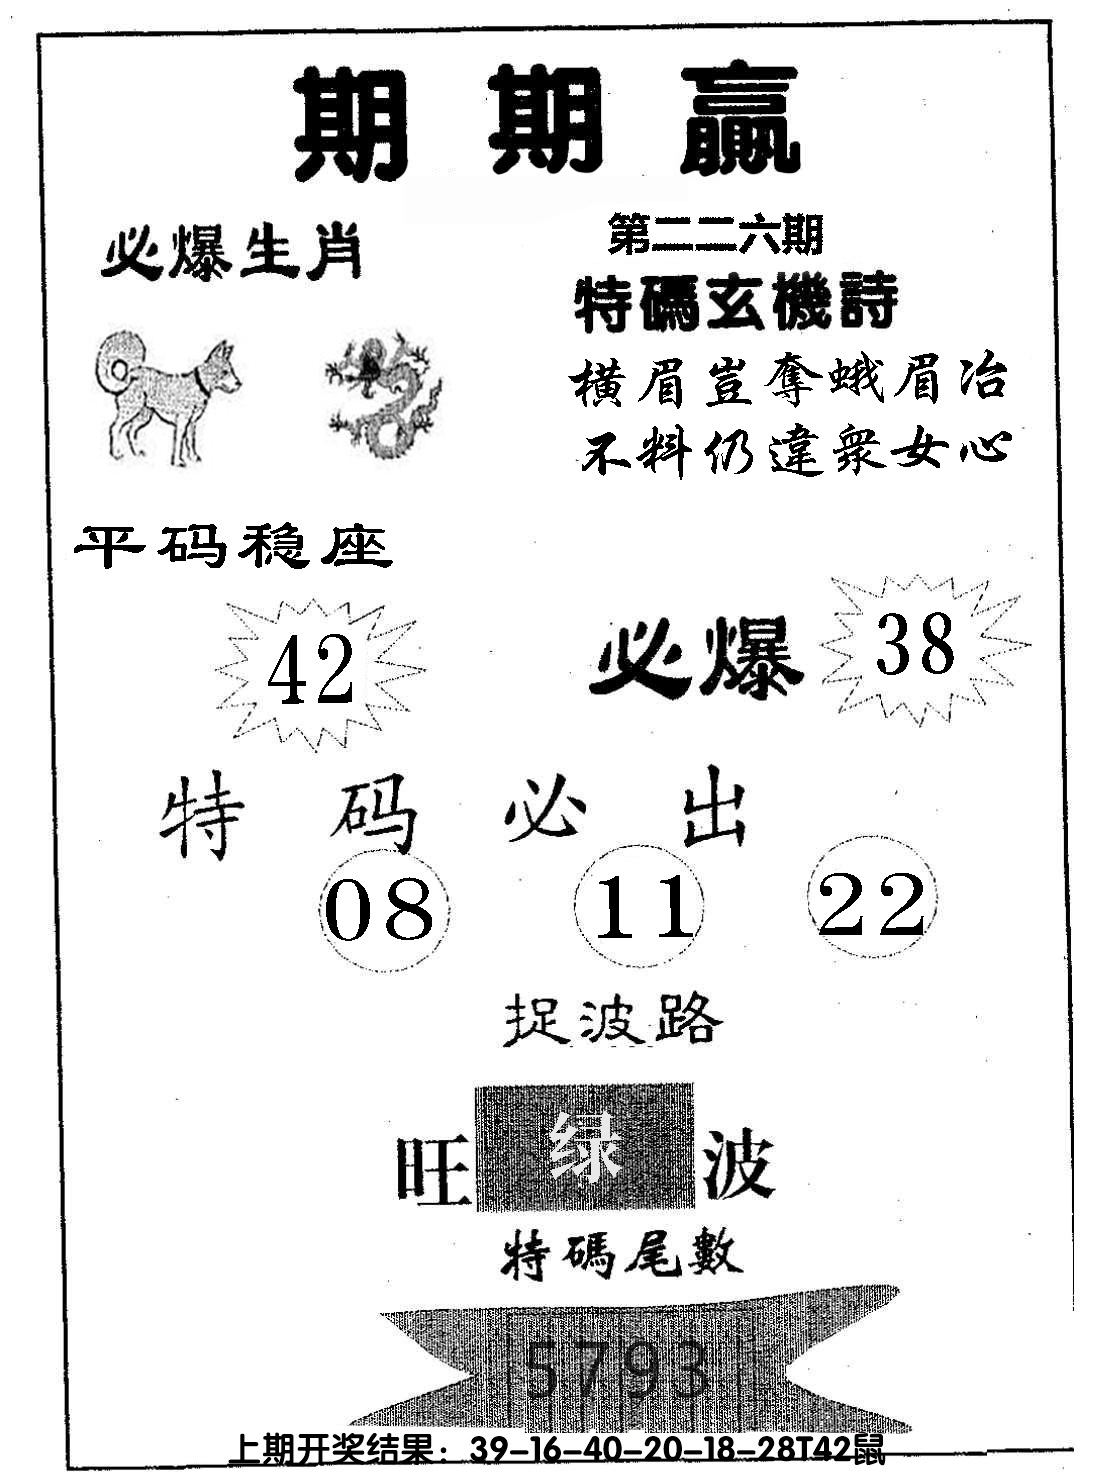 期期贏
必爆生肖
第二二六期
特碼玄機詩
橫眉豈奪蛾眉冶
不料仍違衆女心
平码稳座
42
必爆 38
特码必出
08 11 22
捉波路
旺 绿 波
特碼尾數
5793
上期开奖结果：39-16-40-20-18-28T42鼠